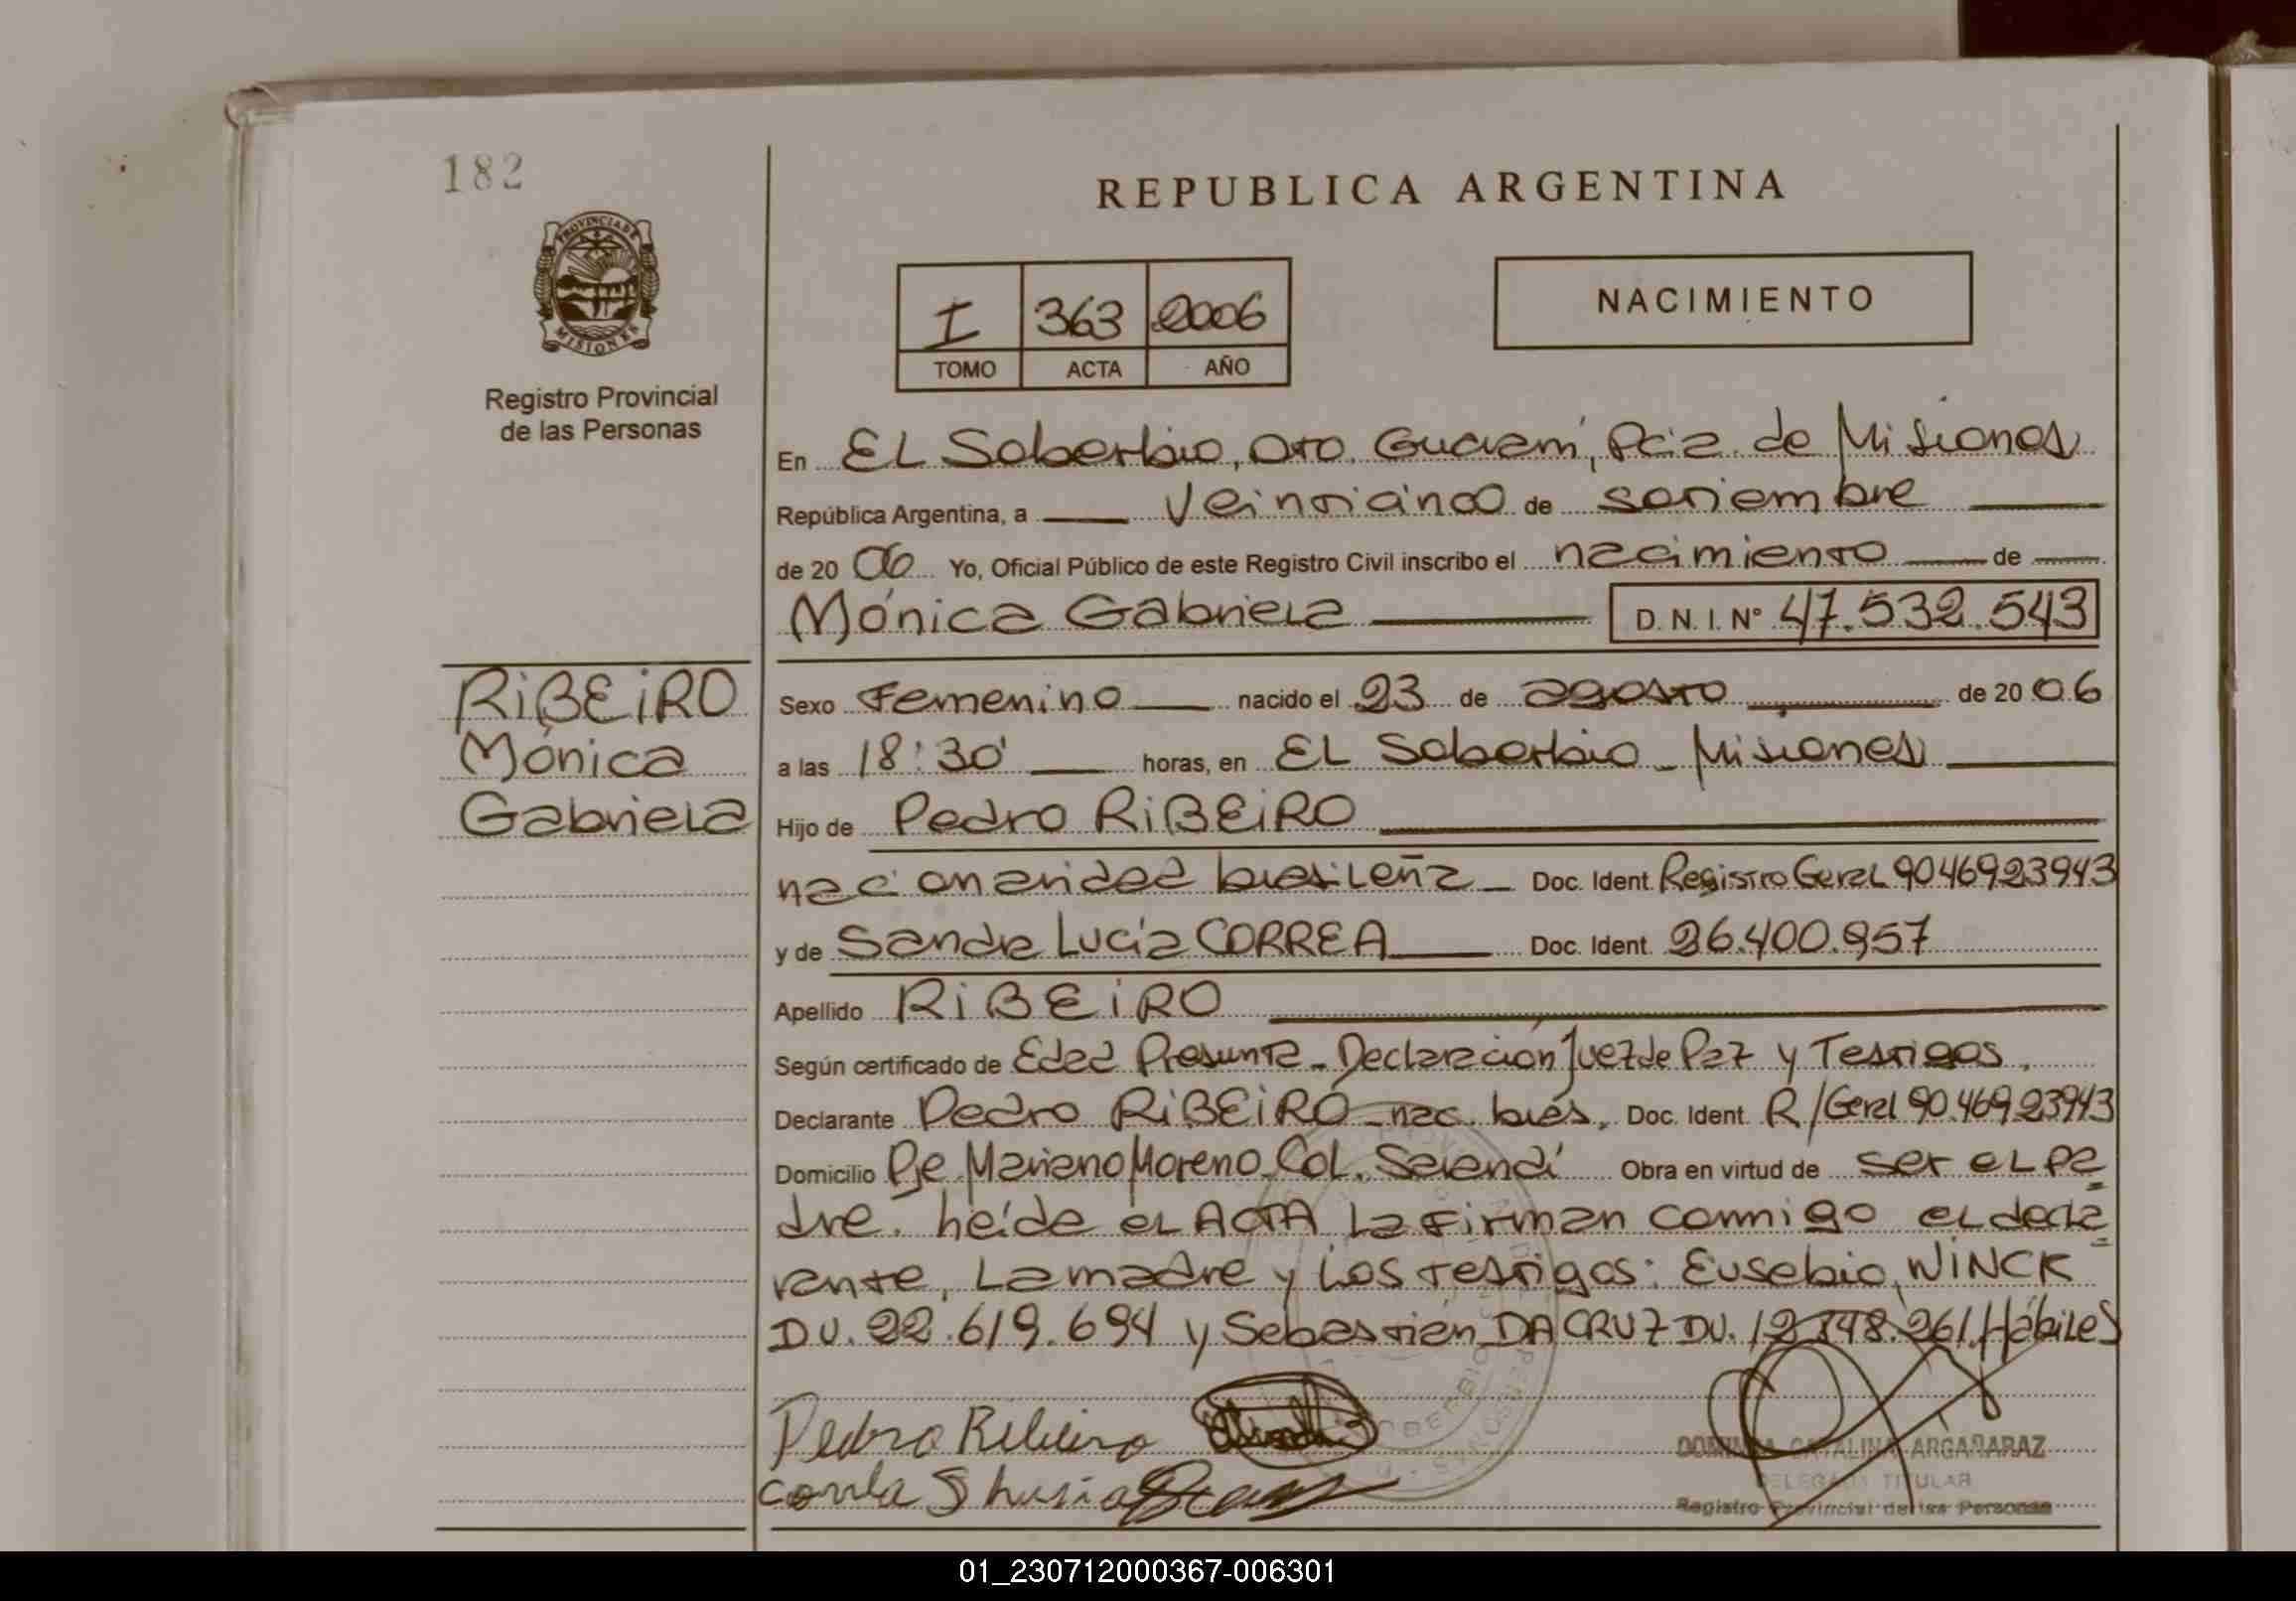 182
REPUBLICA ARGENTINA
PROVINCIA DE
MISIONES
Registro Provincial
de las Personas
I 363 2006
TOMO ACTA AÑO
NACIMIENTO
En EL Soberbio, Dto. Guaraní, Pcia. de Misiones
República Argentina, a veinticinco de setiembre
de 20 06 Yo, Oficial Público de este Registro Civil inscribo el nacimiento de
Mónica Gabriela D. N. I. Nº 47.532.543
RiBEiRO
Mónica
Gabriela
Sexo Femenino nacido el 23 de agosto de 20 06
a las 18:30' horas, en EL Soberbio - Misiones
Hijo de Pedro RiBEiRO
nacionalidad brasileña - Doc. Ident. Registro Geral 9046923943
y de Sandra Lucia CORREA Doc. Ident. 26.400.957
Apellido RiBEiRO
Según certificado de Edad Presunta - Declaración Juez de Paz y Testigos.
Declarante Pedro RiBEiRO - nac. bras. Doc. Ident. R/Geral 90.469.23943
Domicilio Pje Mariano Moreno - Col. Sarandí Obra en virtud de ser el pa
dre. heída el ACTA la firman conmigo el decla
rante, la madre y los testigos: Eusebio WiNCK
DU. 22.619.694 y Sebastián DA CRUZ DU. 12.848.261. Hábiles
Pedro Ribeiro
DOMINGA CATALINA ARGAÑARAZ
DELEGADA TITULAR
Registro Provincial de las Personas
01_230712000367-006301